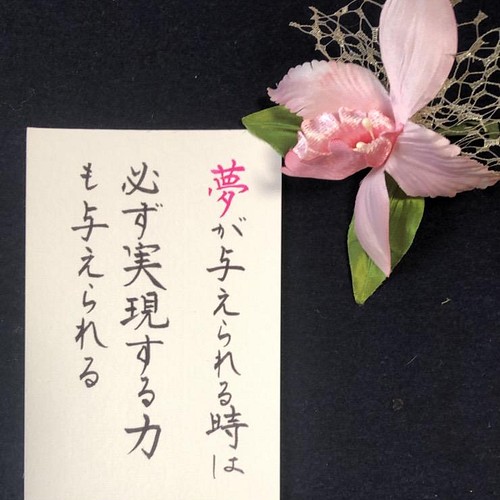 夢が与えられる時は
必ず実現する力
も与えられる